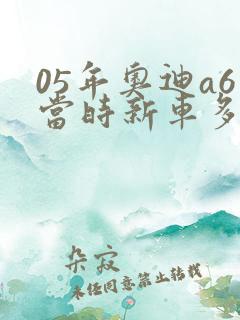 05年奧迪a6
當時新車多
朵寂
未经同意禁止转载